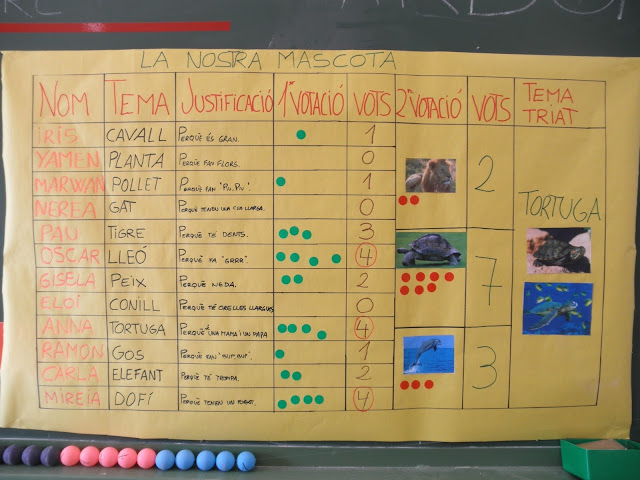 LA NOSTRA MASCOTA
NOM TEMA JUSTIFICACIÓ 1ª VOTACIÓ VOTS 2ª VOTACIÓ VOTS TEMA TRIAT
IRIS CAVALL PERQUÈ ÉS GRAN. 1
YAMEN PLANTA PERQUÈ FAN FLORS. 0
MARWAN POLLET PERQUÈ FAN "PIU, PIU". 1
NEREA GAT PERQUÈ TENEN UNA CUA LLARGA. 0
PAU TIGRE PERQUÈ TÉ DENTS. 3
OSCAR LLEÓ PERQUÈ FA "GRRR". 4
GISELA PEIX PERQUÈ NEDA. 2
ELOI CONILL PERQUÈ TÉ ORELLES LLARGUES 0
ANNA TORTUGA PERQUÈ UNA MAMA I UN PAPA 4
RAMON GOS PERQUÈ FAN "BUP, BUP". 1
CARLA ELEFANT PERQUÈ TÉ TROMPA. 2
MIREIA DOFÍ PERQUÈ TENEN UN 4
2
7
3
TORTUGA